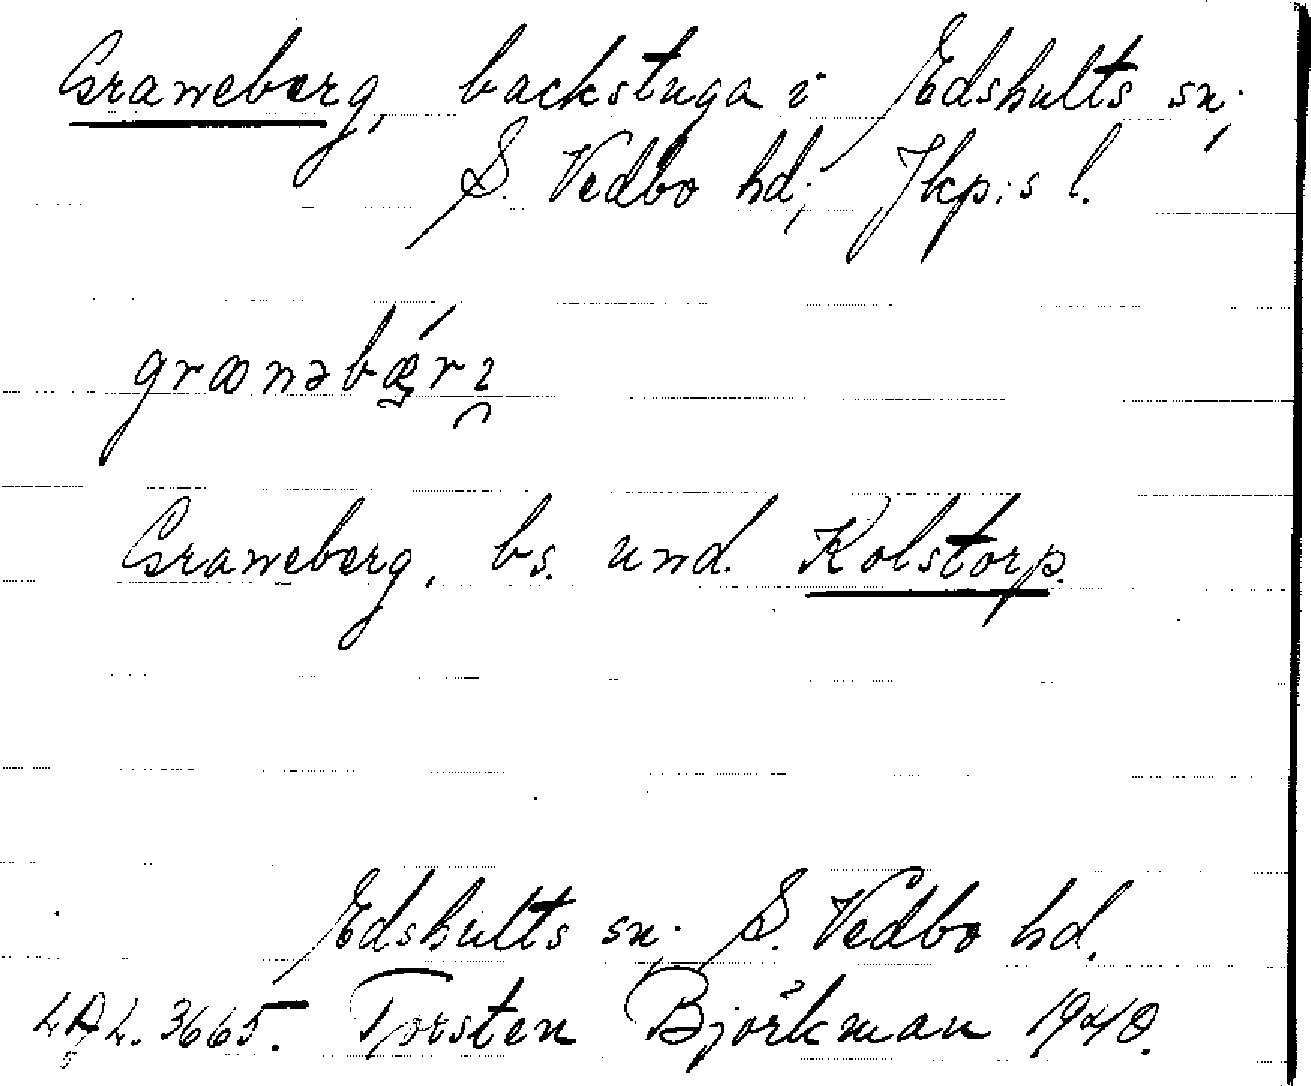 Graneberg, backstuga i Edshults sn,
S. Vedbo hd; Jkp:s l.
Graneberg, bs. und. Kolstorp.
Edshults sn, S. Vedbo hd.
3665. Torsten Björkman 1940.